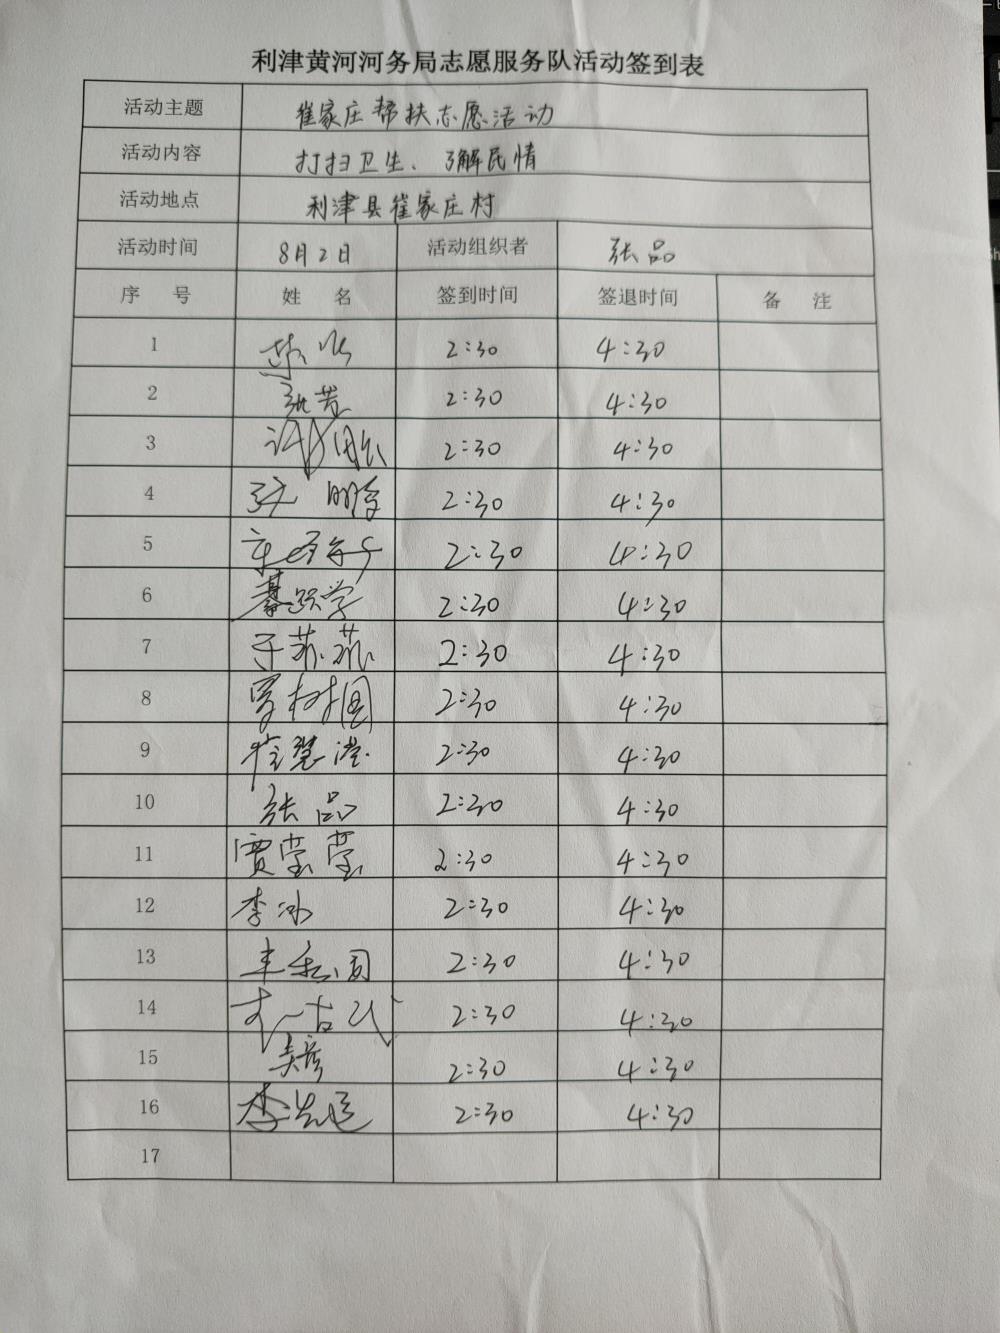 利津黄河河务局志愿服务队活动签到表
活动主题 崔家庄帮扶志愿活动
活动内容 打扫卫生、了解民情
活动地点 利津县崔家庄村
活动时间 8月2日 活动组织者 张品
序 号 姓 名 签到时间 签退时间 备 注
1 2:30 4:30
2 张芳 2:30 4:30
3 2:30 4:30
4 2:30 4:30
5 2:30 4:30
6 綦跃学 2:30 4:30
7 于菲菲 2:30 4:30
8 2:30 4:30
9 崔慧滢 2:30 4:30
10 张品 2:30 4:30
11 贾莹莹 2:30 4:30
12 李冰 2:30 4:30
13 2:30 4:30
14 2:30 4:30
15 2:30 4:30
16 2:30 4:30
17